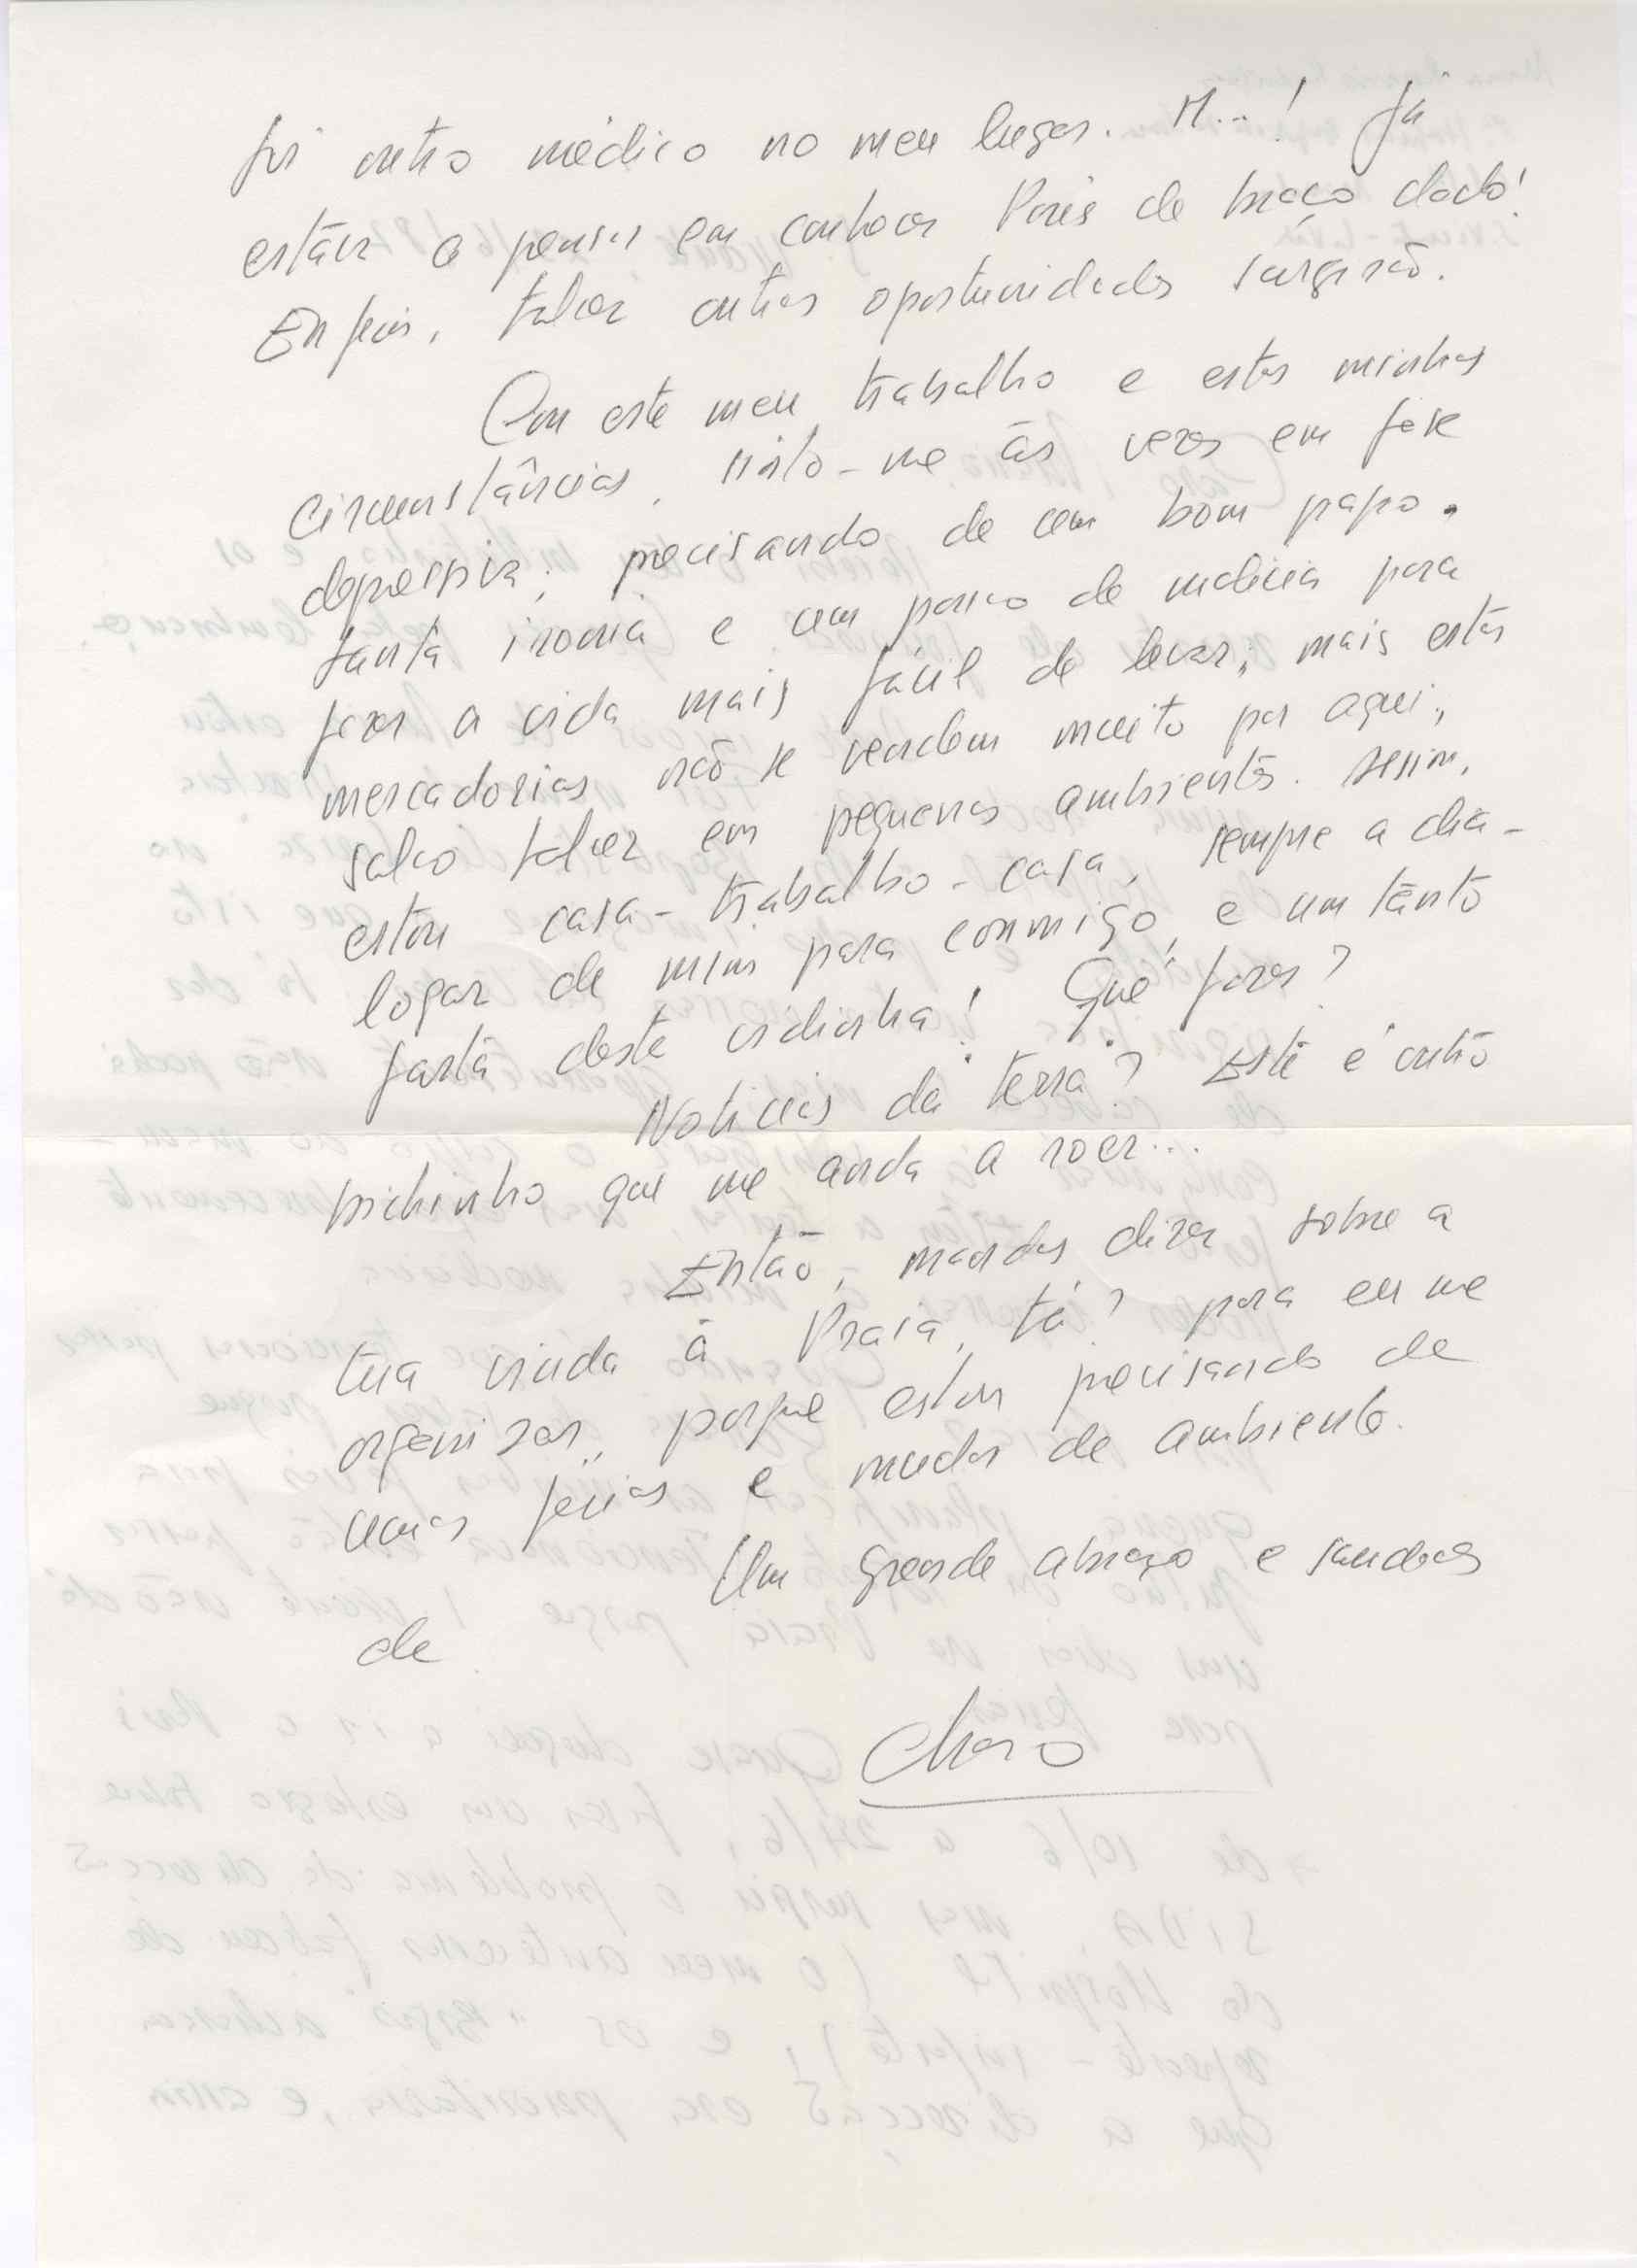 foi outro médico no meu lugar. M...! Já
estava a pensar em conhecer Paris de braço dado!
Enfim, talvez outras oportunidades surgirão.
Com este meu trabalho e estas minhas
circunstâncias, sinto-me às vezes em fase
depressiva; precisando de um bom papo,
tanta ironia e um pouco de malícia para
fazer a vida mais fácil de levar; mais estas
mercadorias não se vendem muito por aqui;
salvo talvez em pequenos ambientes. Assim,
estou casa-trabalho-casa, sempre a dia-
logar de mim para conmigo, e um tanto
farta desta vidinha! Que fazer?
Noticias da terra? Este é outro
bichinho que me anda a roer...
Então, mandas dizer sobre a
tua vinda à Praia, tá? para eu me
organizar, porque estou precisando de
umas férias e mudar de ambiente.
Um grande abraço e saudades
de
Charo